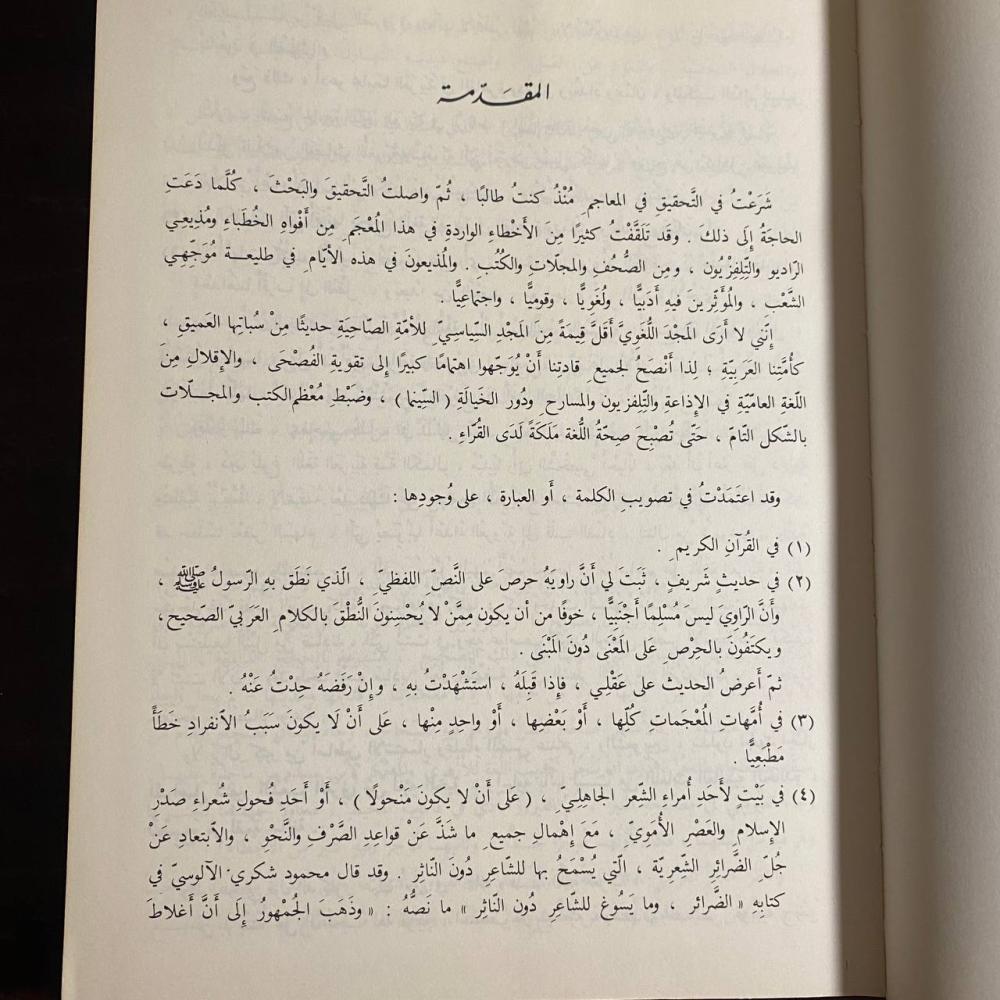 المقدّمة
شَرَعْتُ في التَّحقيقِ في المعاجمِ مُنْذُ كنتُ طالبًا ، ثُمّ واصلتُ التَّحقيقَ والبَحْثَ ، كُلَّما دَعَتِ
الحاجَةُ إِلَى ذلكَ . وقَد تَلَقَّفْتُ كثيرًا مِنَ الأَخْطاءِ الواردةِ في هذا المُعْجَمِ مِن أَفْواهِ الخُطَباءِ ومُذِيعِي
الرّاديو والتِّلِفِزْيُون ، ومِن الصُّحُفِ والمجلّاتِ والكُتُبِ . والمُذيعونَ في هذه الأيّامِ في طليعـــة مُوَجِّهِي
الشَّعْبِ ، والمُؤَثِّرِينَ فيهِ أَدَبِيًّا ، ولُغَوِيًّا ، وقوميًّا ، واجتماعِيًّا .
إِنَّني لا أَرَى المَجْدَ اللُّغَوِيَّ أَقَلَّ قِيمَةً مِنَ المَجْدِ السِّيَاسِيِّ للأمّةِ الصّاحِيَةِ حديثًا مِنْ سُباتِها العَميقِ ،
كأُمَّتِنا العَرَبِيَّةِ ؛ لِذا أَنْصَحُ لجميعِ قادتِنا أَنْ يُوَجّهوا اهتمامًا كبيرًا إِلى تقويةِ الفُصْحَى ، والإِقلالِ مِنَ
اللّغةِ العامّيّةِ في الإِذاعةِ والتِّلِفزيون والمسارحِ ودُور الخَيالَةِ ( السِّينما ) ، وضَبْطِ مُعْظم الكتب والمجـــلّات
بالشّكل التّامّ ، حَتّى تُصْبِحَ صِحّةُ اللُّغة مَلَكَةً لَدَى القُرّاءِ .
وقد اعتَمَدْتُ في تصويبِ الكلمة ، أَو العبارة ، على وُجودِها :
(١) في القُرآنِ الكريمِ .
(٢) في حديثٍ شَريفٍ ، ثَبَتَ لي أَنَّ راويَهُ حرصَ على النَّصِّ اللفظيِّ ، الّذي نَطَق بهِ الرّسولُ ﷺ ،
وأَنَّ الرّاوِيَ ليسَ مُسْلِمًا أَجْنَبِيًّا ، خوفًا من أن يكون مِمَّنْ لا يُحْسِنونَ النُّطْقَ بالكلامِ العَرَبيّ الصّحيح ،
ويكتَفُونَ بالحِرْصِ عَلى المَعْنَى دُونَ المَبْنَى .
ثمّ أَعرِضُ الحديث على عَقْلِي ، فإِذا قَبِلَهُ ، استَشْهَدْتُ بهِ ، وإِنْ رَفَضَهُ حِدْتُ عَنْهُ .
(٣) في أُمَّهاتِ المُعْجَماتِ كُلِّها ، أَوْ بَعْضِها ، أَوْ واحدٍ مِنْها ، عَلى أَنْ لَا يكونَ سَبَبُ الاّنفرادِ خَطَأً
مَطْبَعِيًّا .
(٤) في بَيْتٍ لأَحَدِ أُمراءِ الشِّعر الجاهِلِيِّ ، ( عَلى أَنْ لا يكونَ مَنْحولًا ) ، أَوْ أَحَدِ فُحولِ شُعراءِ صَدْرِ
الإِسلامِ والعَصْرِ الأُمَوِيِّ ، مَعَ إِهْمالِ جميعِ ما شَذَّ عَنْ قواعِدِ الصَّرْفِ والنَّحْوِ ، والاّبتعاد عَنْ
جُلّ الضَّرائِرِ الشِّعريّة ، الّتي يُسْمَحُ بها للشّاعِرِ دُونَ النّاثِرِ . وقد قال محمود شكري الآلوسيّ في
كتابِهِ « الضَّرائر ، وما يَسُوغ للشّاعرِ دُون النّاثِر » ما نَصُّهُ : « وذَهَبَ الجُمْهورُ إِلَى أَنَّ أَغلاطَ